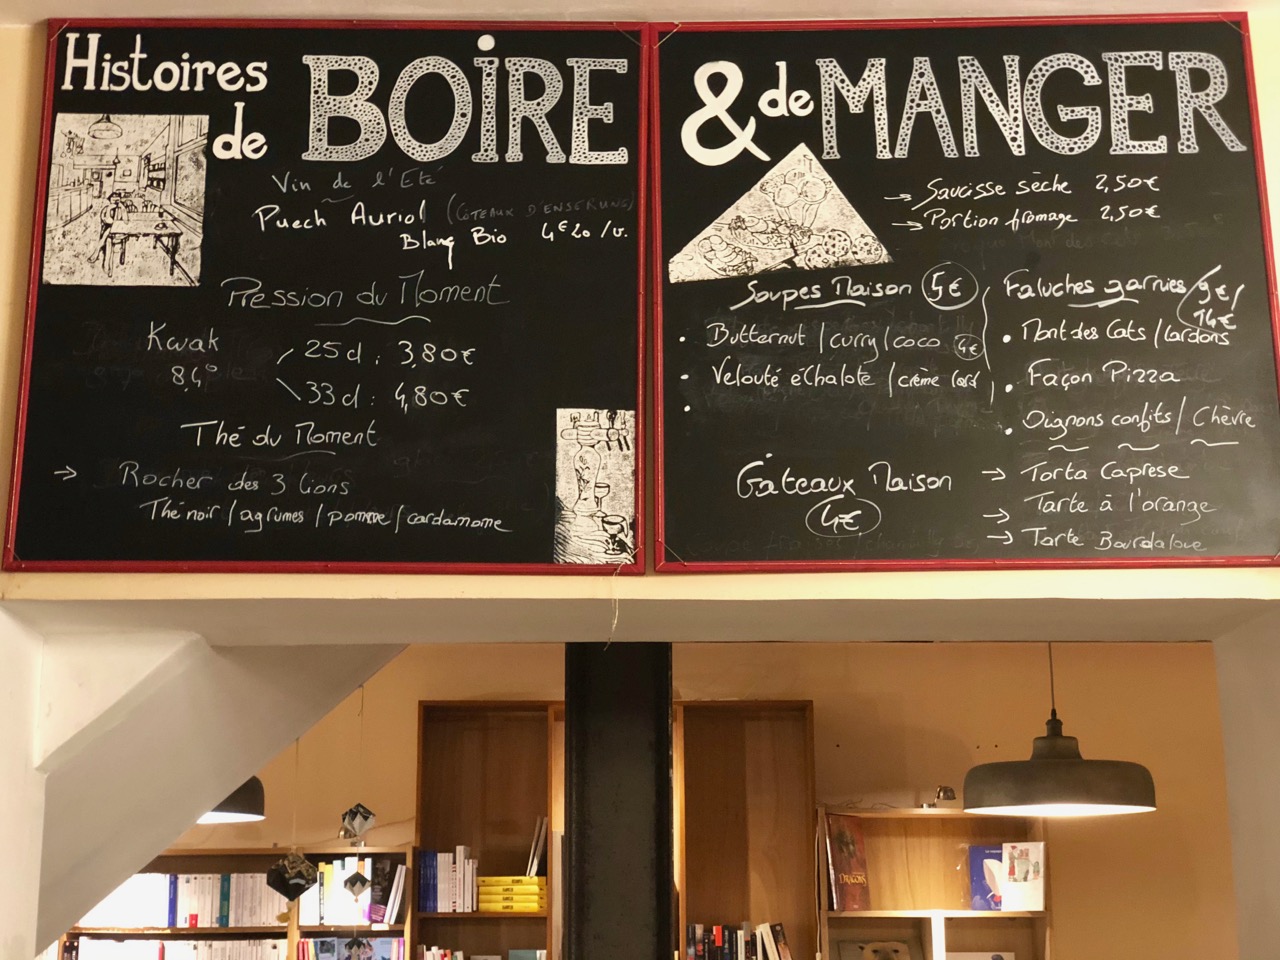 Histoires
de BOIRE
Vin de l'Eté
Puech Auriol (COTEAUX D'ENSERUNE)
Blanc Bio 4€20 /v.
Pression du Moment
Kwak
8,4°
25cl : 3,80€
33cl : 4,80€
Thé du Moment
→ Rocher des 3 lions
Thé noir / agrumes / pomme / cardamome
& de MANGER
→ Saucisse sèche 2,50€
→ Portion fromage 2,50€
Soupes Maison 5€
• Butternut / curry / coco 4€
• Velouté échalote / crème lard
•
Faluches garnies 9€/
14€
• Mont des Cats / lardons
• Façon Pizza
• Oignons confits / Chèvre
Gâteaux Maison
4€
→ Torta Caprese
→ Tarte à l'orange
→ Tarte Bourdaloue
DRAGONS